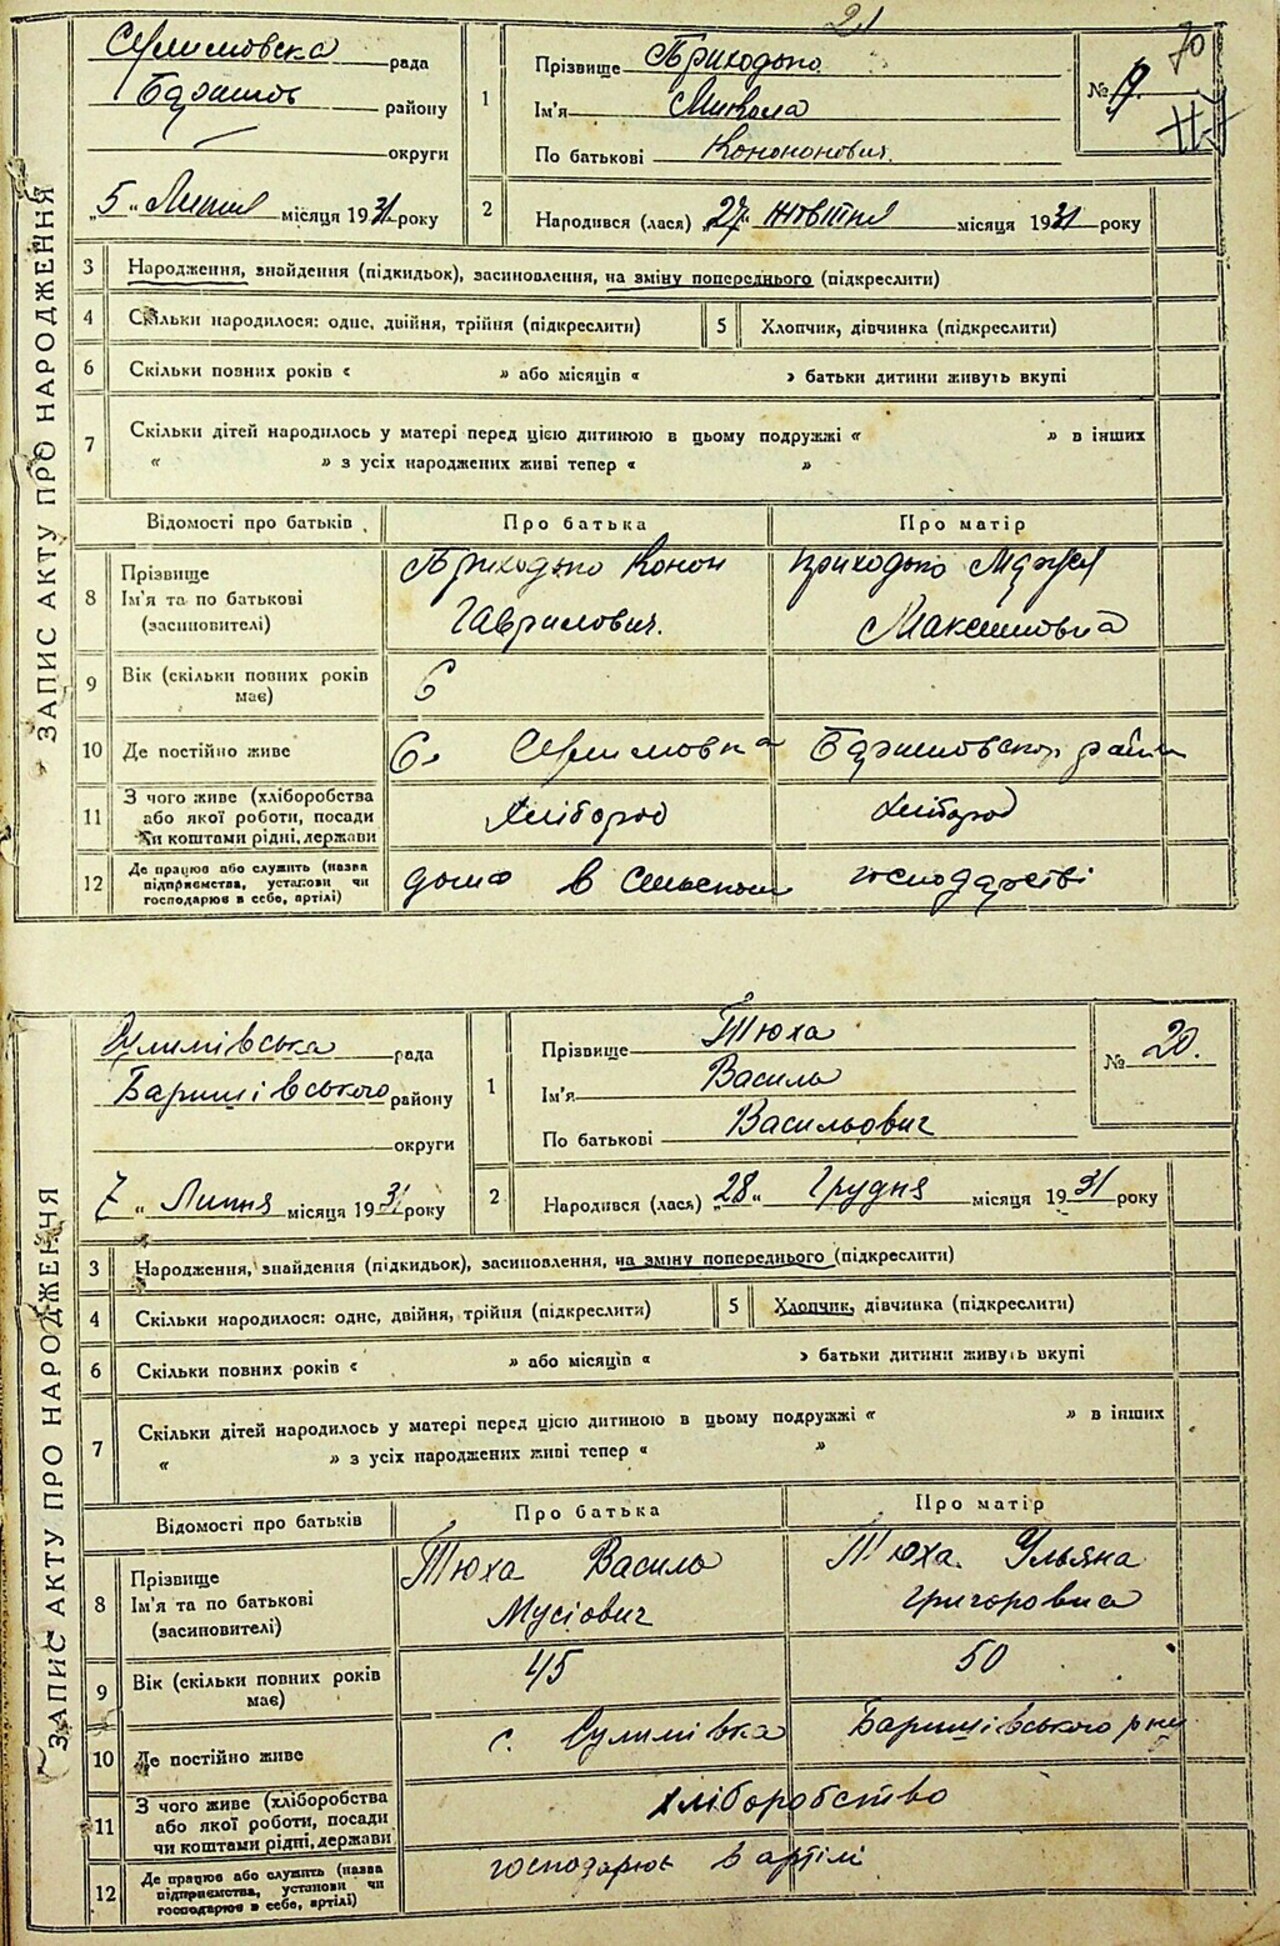 21
70
ЗАПИС АКТУ ПРО НАРОДЖЕННЯ
рада
району
округи
"5" Липня місяця 1931 року
1
Прізвище Приходько
Ім'я Микола
По батькові Кононович.
№ 19
2
Народився (лася) "27" жовтня місяця 1931 року
3 Народження, знайдення (підкидьок), засиновлення, на зміну попереднього (підкреслити)
4 Скільки народилося: одне, двійня, трійня (підкреслити) 5 Хлопчик, дівчинка (підкреслити)
6 Скільки повних років « » або місяців « » батьки дитини живуть вкупі
7 Скільки дітей народилось у матері перед цією дитиною в цьому подружжі « » в інших
« » з усіх народжених живі тепер « »
Відомості про батьків Про батька Про матір
8 Прізвище
Ім'я та по батькові
(засиновителі)
Приходько Конон
Гаврилович.
Приходько
Максимовна
9 Вік (скільки повних років
має)
10 Де постійно живе
11 З чого живе (хліборобства
або якої роботи, посади
чи коштами рідні, держави
Хлібороб
Хлібороб
12 Де працює або служить (назва
підприємства, установи чи
господарює в себе, артілі)
дома в сільском господарстві
ЗАПИС АКТУ ПРО НАРОДЖЕННЯ
Сулимівська рада
Баришівського району
округи
7 " Липня місяця 1931 року
1
Прізвище Тюха
Ім'я Василь
По батькові Васильович
№ 20.
2
Народився (лася) "28" Грудня місяця 1931 року
3 Народження, знайдення (підкидьок), засиновлення, на зміну попереднього (підкреслити)
4 Скільки народилося: одне, двійня, трійня (підкреслити) 5 Хлопчик, дівчинка (підкреслити)
6 Скільки повних років « » або місяців « » батьки дитини живуть вкупі
7 Скільки дітей народилось у матері перед цією дитиною в цьому подружжі « » в інших
« » з усіх народжених живі тепер « »
Відомості про батьків Про батька Про матір
8 Прізвище
Ім'я та по батькові
(засиновителі)
Тюха Василь
Мусіович
Тюха Ульяна
Григоровна
9 Вік (скільки повних років
має)
45
50
10 Де постійно живе
с. Сулимівка Баришівського р-ну
11 З чого живе (хліборобства
або якої роботи, посади
чи коштами рідні, держави
хліборобство
12 Де працює або служить (назва
підприємства, установи чи
господарює в себе, артілі)
господарює в артілі